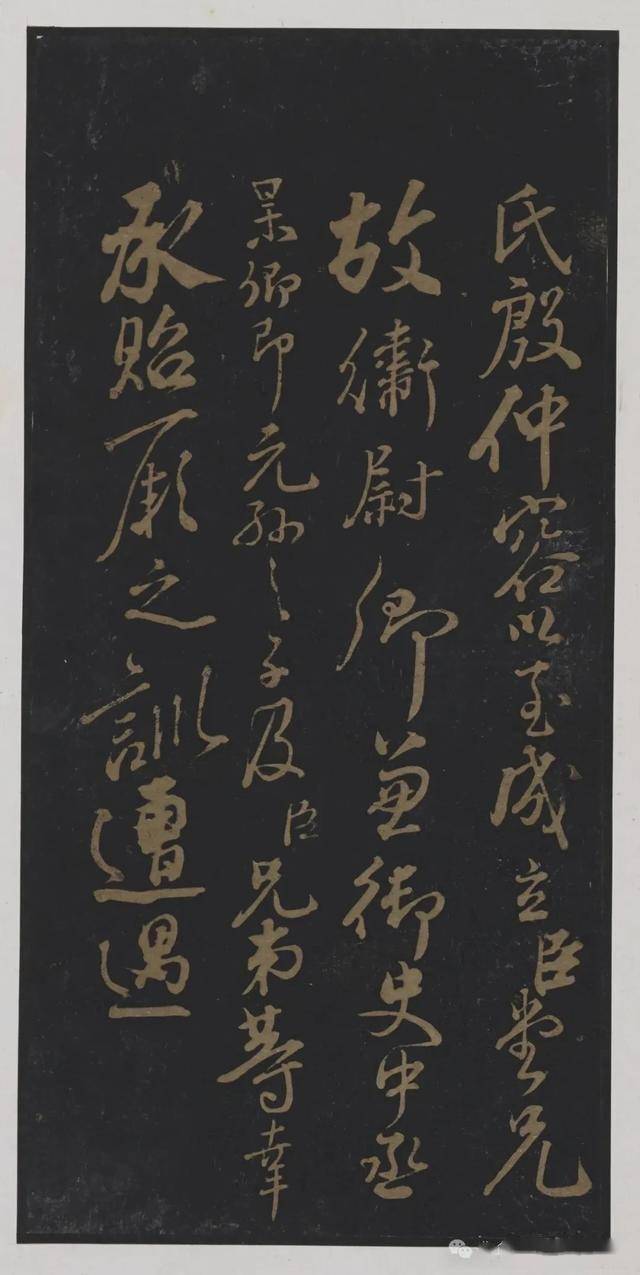 氏殷仲容以至成立臣堂兄
故衛尉卿兼御史中丞
杲卿即元孫之子及臣兄弟等幸
承貽厥之訓遭遇